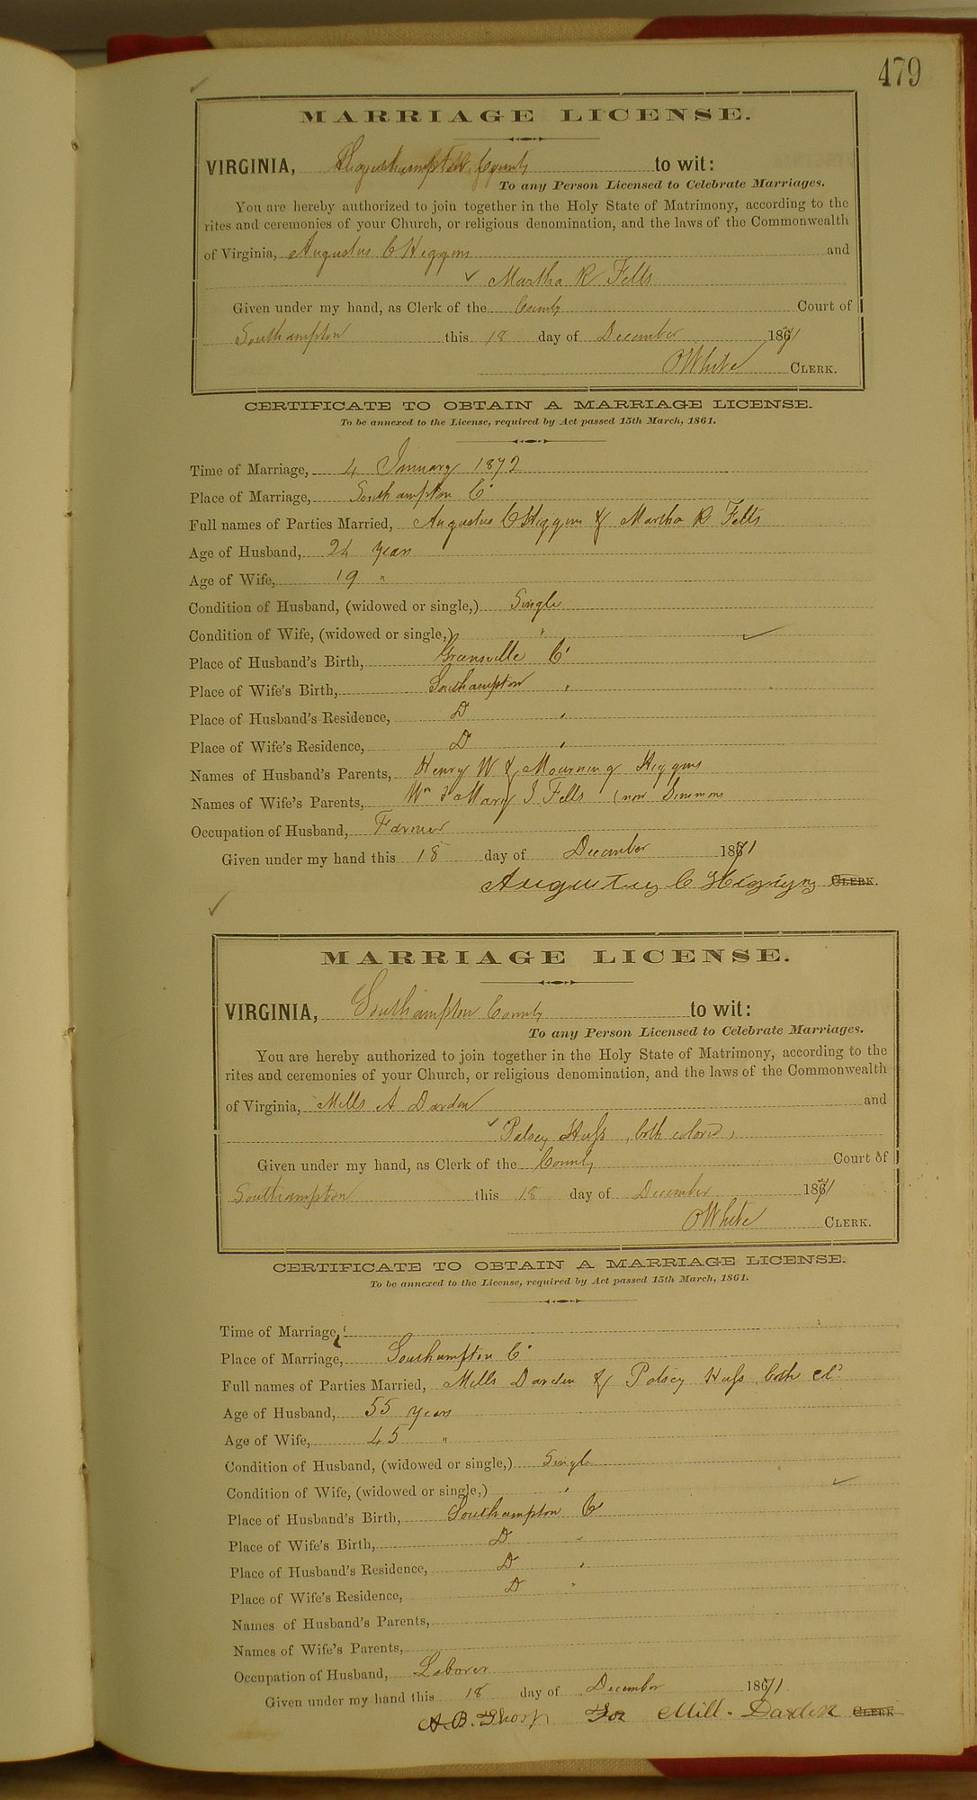 479
MARRIAGE LICENSE.
VIRGINIA, County to wit:
To any Person Licensed to Celebrate Marriages.
You are hereby authorized to join together in the Holy State of Matrimony, according to the
rites and ceremonies of your Church, or religious denomination, and the laws of the Commonwealth
of Virginia, Augustus C Higgins and
Martha R Felts
Given under my hand, as Clerk of the County Court of
Southampton this 18 day of December 1871
O White CLERK.
CERTIFICATE TO OBTAIN A MARRIAGE LICENSE.
To be annexed to the License, required by Act passed 15th March, 1861.
Time of Marriage, 4 January 1872
Place of Marriage, Southampton Co
Full names of Parties Married, Augustus C Higgins & Martha R Felts
Age of Husband, 24 years
Age of Wife, 19 "
Condition of Husband, (widowed or single,) Single
Condition of Wife, (widowed or single,) "
Place of Husband's Birth, Greensville Co
Place of Wife's Birth, Southampton "
Place of Husband's Residence, Do "
Place of Wife's Residence, Do "
Names of Husband's Parents, Henry W & Mourning Higgins
Names of Wife's Parents, Wm & Mary J Felts (now Simmons
Occupation of Husband, Farmer
Given under my hand this 18 day of December 1871
Augustus C Higgins CLERK.
MARRIAGE LICENSE.
VIRGINIA, Southampton County to wit:
To any Person Licensed to Celebrate Marriages.
You are hereby authorized to join together in the Holy State of Matrimony, according to the
rites and ceremonies of your Church, or religious denomination, and the laws of the Commonwealth
of Virginia, Mills A Darden and
Patsey Huss, both colored,
Given under my hand, as Clerk of the County Court of
Southampton this 18 day of December 1871
O White CLERK.
CERTIFICATE TO OBTAIN A MARRIAGE LICENSE.
To be annexed to the License, required by Act passed 15th March, 1861.
Time of Marriage,
Place of Marriage, Southampton Co
Full names of Parties Married, Mills Darden & Patsey Huss both cld
Age of Husband, 55 years
Age of Wife, 45 "
Condition of Husband, (widowed or single,) Single
Condition of Wife, (widowed or single,) "
Place of Husband's Birth, Southampton Co
Place of Wife's Birth, Do "
Place of Husband's Residence, Do "
Place of Wife's Residence, Do "
Names of Husband's Parents,
Names of Wife's Parents,
Occupation of Husband, Laborer
Given under my hand this 18 day of December 1871
A. B. Thorp For Mill. Darden CLERK